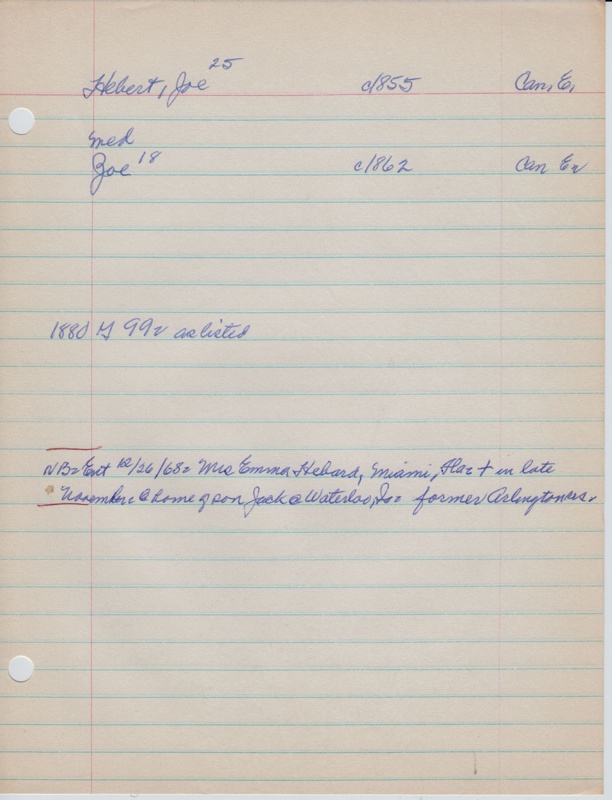 Hebert, Joe 25 c1855 Can, E,
med
Zoe 18 c1862 Can En
1880 99 as listed
NB= Ent 12/26/68= Mrs Emma Hebard, Miami, Fla= + in late
November @ home of son Jack @ Waterloo, Io= former Arlingtoners.